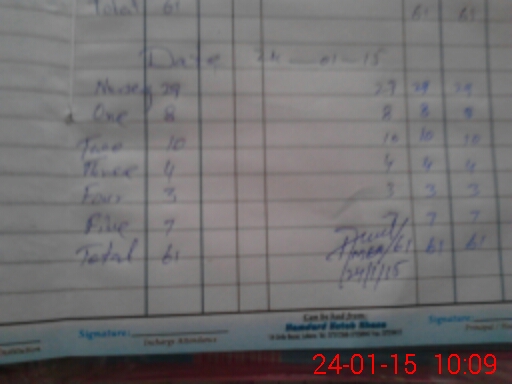 Total 61 61 61
Date 24-01-15
Nursery 29 29 29 29
One 8 8 8 8
Two 10 10 10 10
Three 4 4 4 4
Four 3 3 3 3
Five 7 7 7 7
Total 61 61 61 61
24/1/15
Can be had from:
Signature: Hamdard Kutab Khana Signature:
Incharge Attendance Principal /
24-01-15 10:09